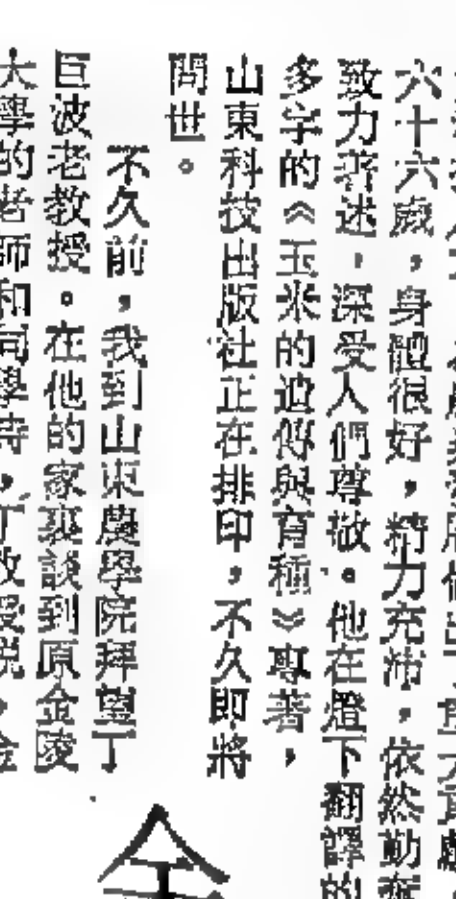 六十六歲，身體很好，精力充沛，依然勤奮
致力著述，深受人們尊敬。他在燈下翻譯的
多字的《玉米的遺傳與育種》專著，
山東科技出版社正在排印，不久即將
問世。
不久前，我到山東農學院拜望丁
巨波老教授。在他的家裏談到原金陵
大學的老師和同學時，丁教授説，金